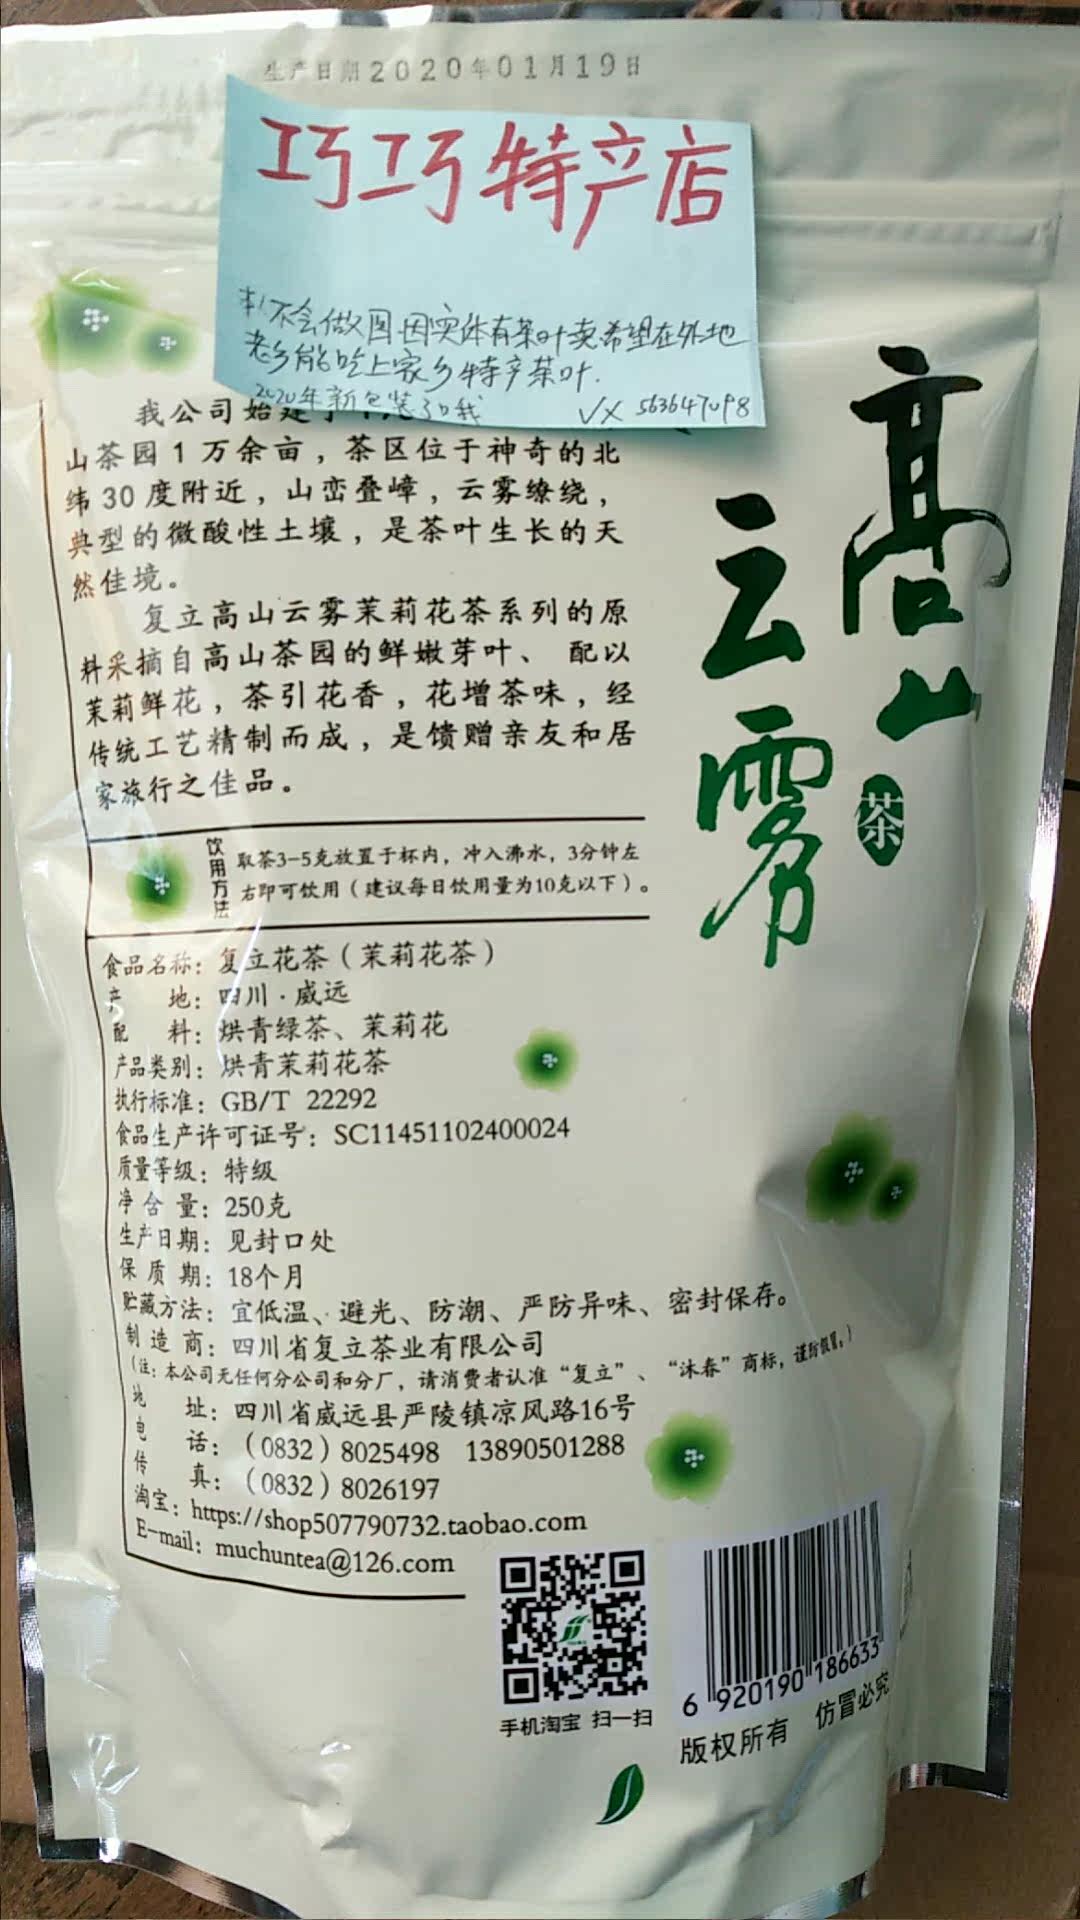 生产日期2020年01月19日
巧巧特产店
本人不会做图因实体有茶叶卖希望在外地
老乡能吃上家乡特产茶叶.
2020年新包装 VX 563647098
我公司始建于
山茶园1万余亩，茶区位于神奇的北
纬30度附近，山峦叠嶂，云雾缭绕，
典型的微酸性土壤，是茶叶生长的天
然佳境。
复立高山云雾茉莉花茶系列的原
料采摘自高山茶园的鲜嫩芽叶、 配以
茉莉鲜花，茶引花香，花增茶味，经
传统工艺精制而成，是馈赠亲友和居
家旅行之佳品。
高山
云雾
茶
饮用方法
取茶3-5克放置于杯内，冲入沸水，3分钟左
右即可饮用（建议每日饮用量为10克以下）。
食品名称：复立花茶（茉莉花茶）
产 地：四川·威远
配 料：烘青绿茶、茉莉花
产品类别：烘青茉莉花茶
执行标准：GB/T 22292
食品生产许可证号：SC11451102400024
质量等级：特级
净含量：250克
生产日期：见封口处
保质期：18个月
贮藏方法：宜低温、避光、防潮、严防异味、密封保存。
制造商：四川省复立茶业有限公司
（注：本公司无任何分公司和分厂，请消费者认准“复立”、“沐春”商标，谨防假冒。）
地 址：四川省威远县严陵镇凉风路16号
电 话：（0832）8025498 13890501288
传 真：（0832）8026197
淘宝：https://shop507790732.taobao.com
E-mail：muchuntea@126.com
手机淘宝 扫一扫
6 920190 186633
版权所有 仿冒必究